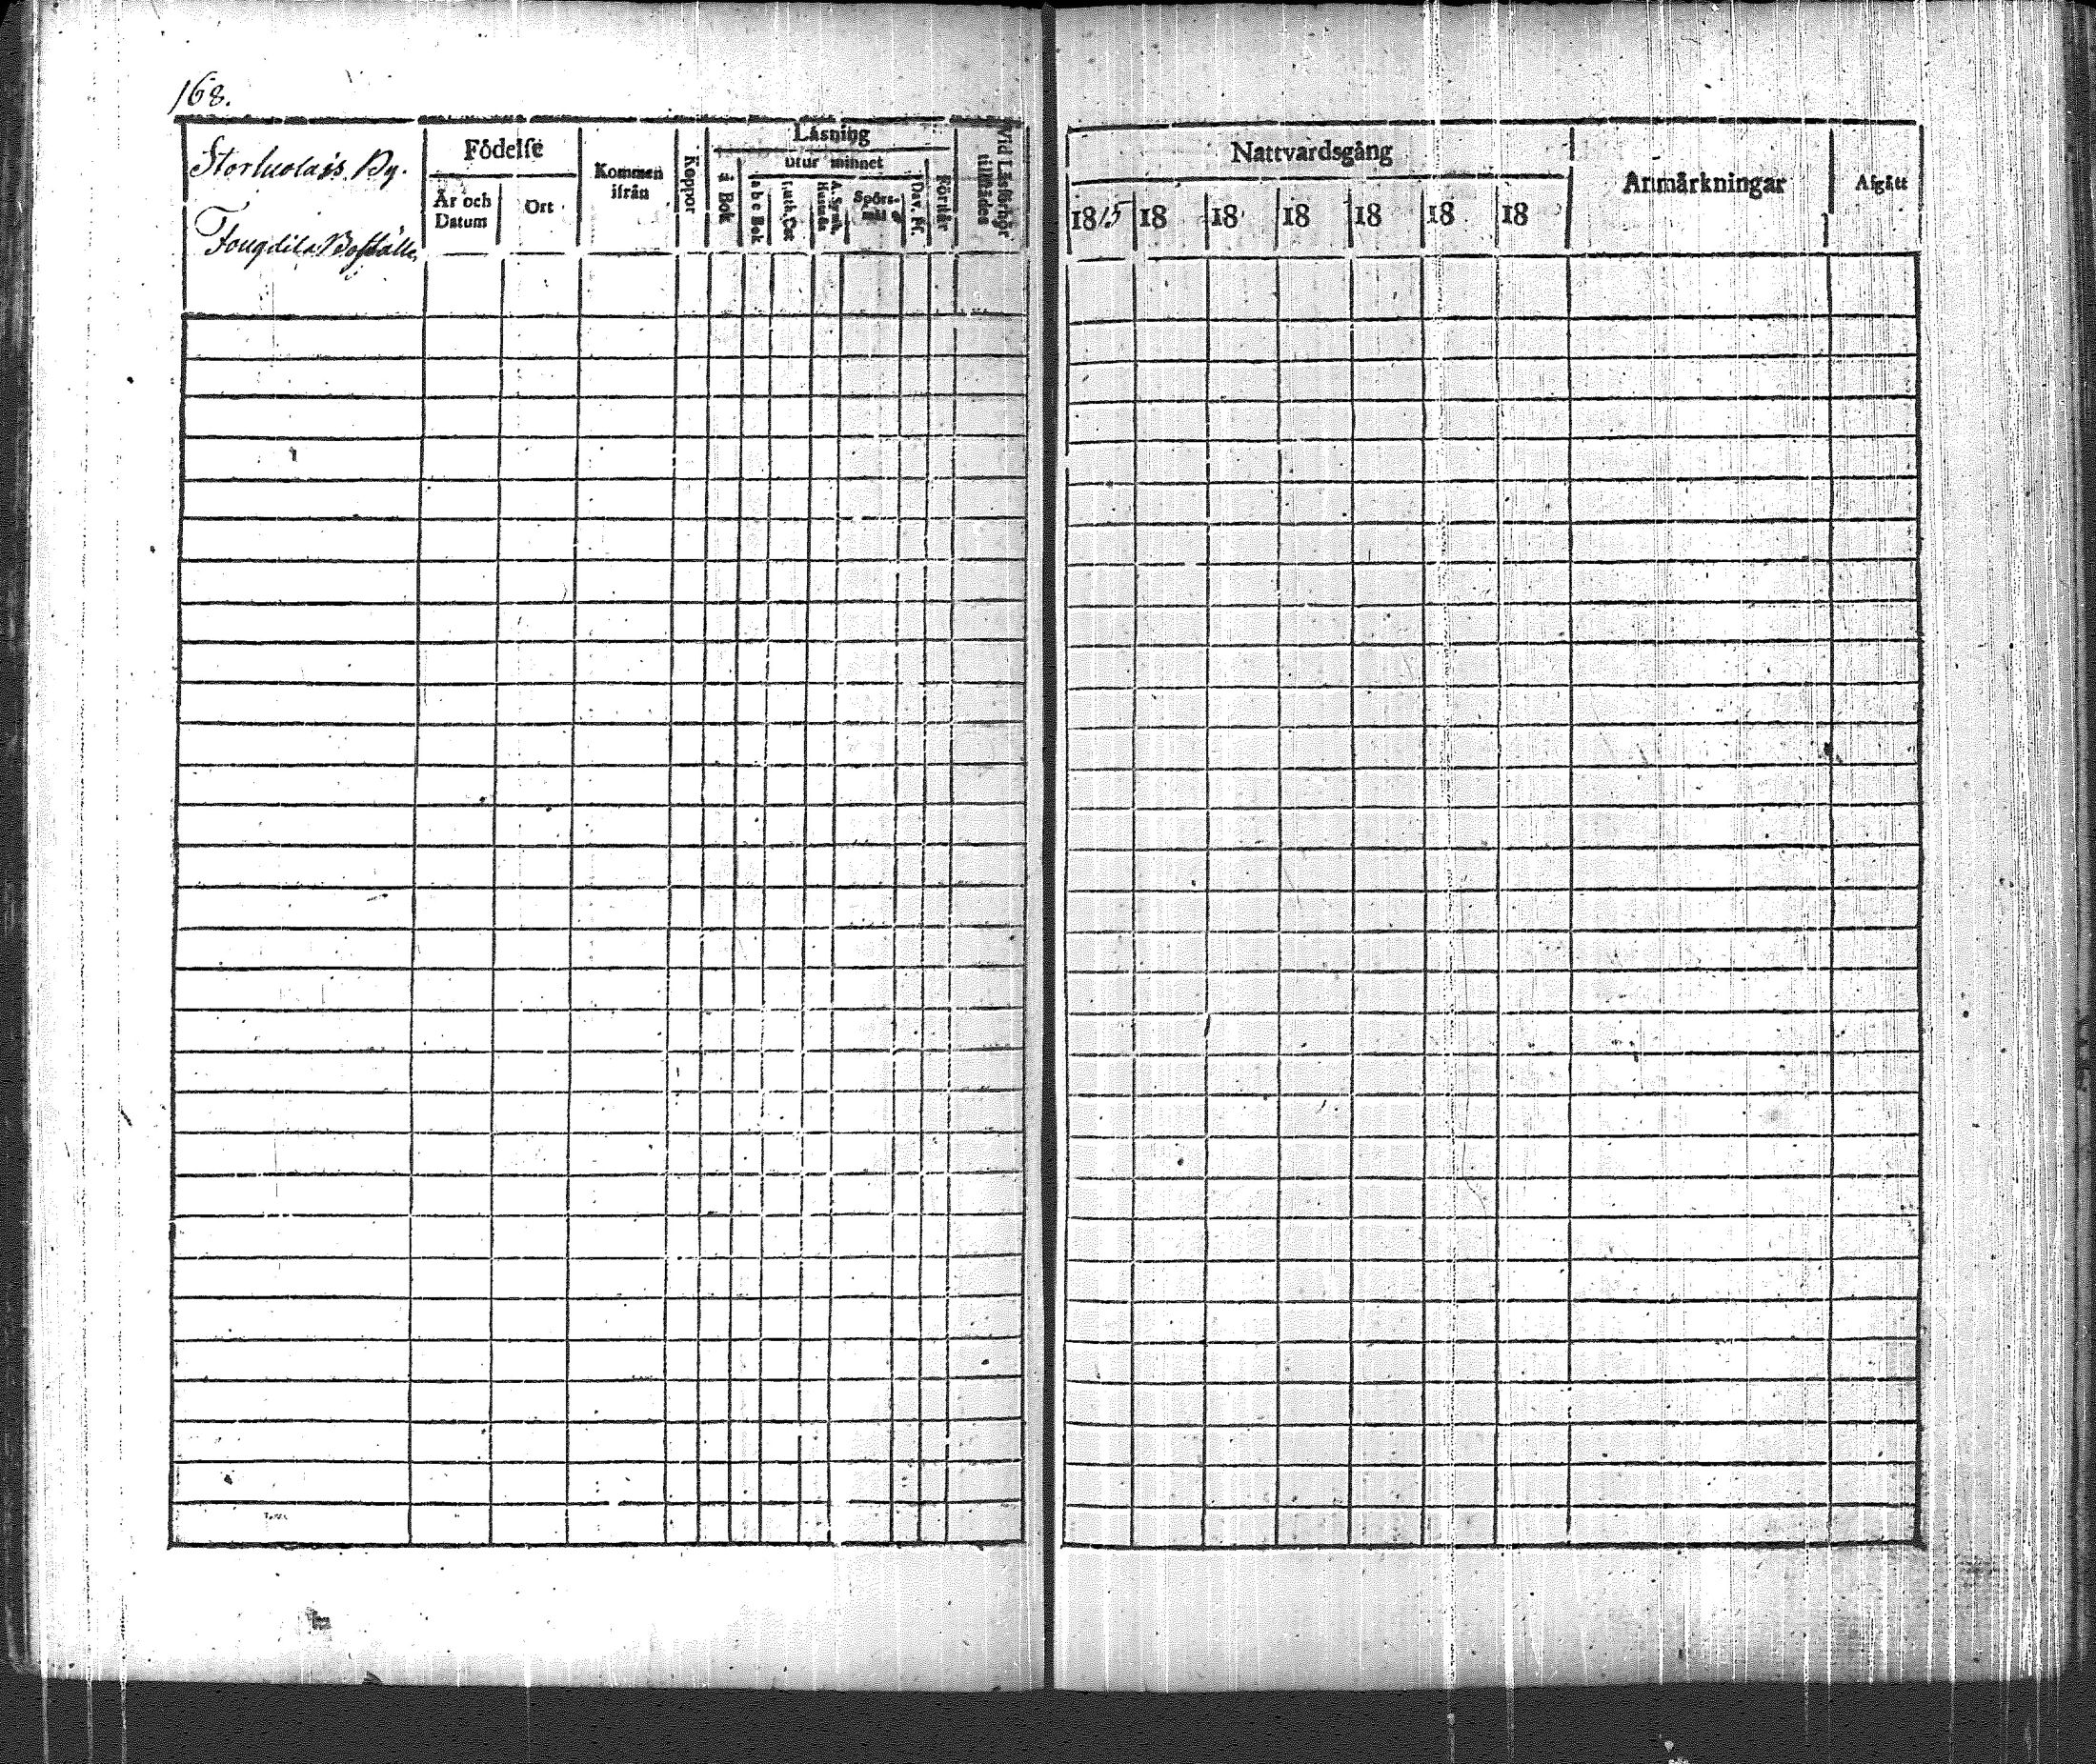 168.
Storluolais By.
Fougdila Boställe
Födelse
År och
Datum
Ort
Kommen
ifrån
Koppor
Läsning
å Bok
utur minnet
a b c Bok
Luth. Cat
A. Symb.
Hustafla
Spörs-
mål
Dav. Ps.
Förstår
Vid Läsförhör
tillstädes
Nattvardsgång
1815 18 18 18 18 18 18
Anmärkningar
Afgått